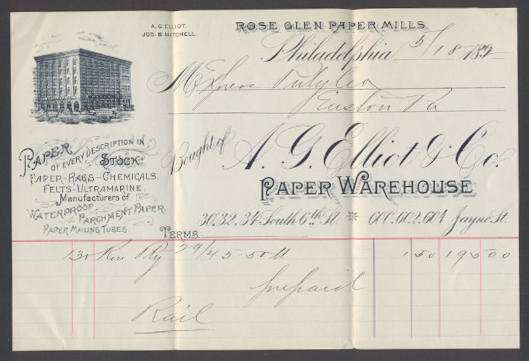 A. G. ELLIOT.
JOS. B. MITCHELL.
ROSE GLEN PAPER MILLS.
Philadelphia 5/18 189
M Express
Easton Pa
Bought of A. G. Elliot & Co.
PAPER WAREHOUSE
30, 32, 34 South 6th St. 600, 602, 604 Jayne St.
PAPER
OF EVERY DESCRIPTION IN
STOCK.
PAPER-RAGS-CHEMICALS.
FELTS-ULTRAMARINE.
Manufacturers of
WATERPROOF
PARCHMENT PAPER
PAPER MAILING TUBES.
TERMS
130 29/45-50 1 50 195 00
prepaid
Rail